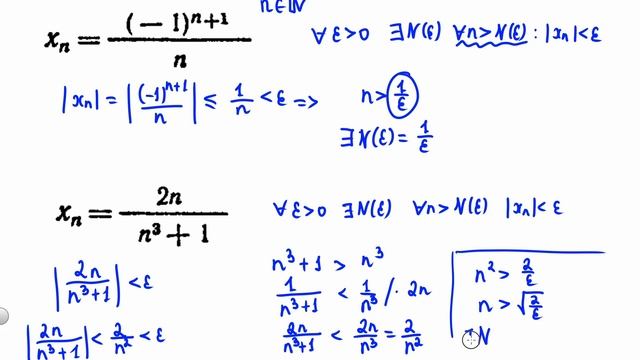 n∈ℕ
xₙ = (−1)ⁿ⁺¹ / n
∀ε>0 ∃N(ε) ∀n>N(ε) : |xₙ|<ε
|xₙ| = |(-1)ⁿ⁺¹ / n| ≤ 1/n < ε => n > 1/ε
∃N(ε) = 1/ε
xₙ = 2n / (n³ + 1)
∀ε>0 ∃N(ε) ∀n>N(ε) |xₙ|<ε
|2n / (n³+1)| < ε
|2n / (n³+1)| < 2/n² < ε
n³+1 > n³
1/(n³+1) < 1/n³ /· 2n
2n/(n³+1) < 2n/n³ = 2/n²
n² > 2/ε
n > √(2/ε)
N